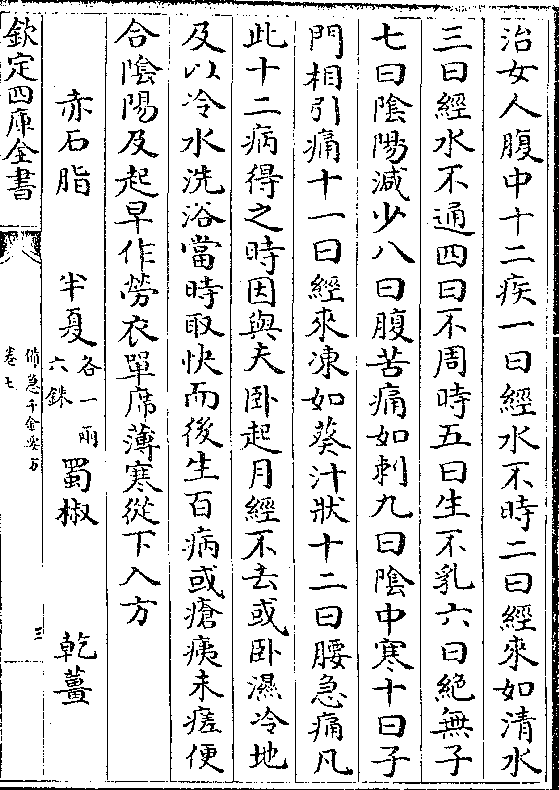 治女人腹中十二疾一曰經水不時二曰經來如清水
三曰經水不通四曰不周時五曰生不乳六曰絕無子
七曰陰陽減少八曰腹苦痛如刺九曰陰中寒十曰子
門相引痛十一曰經來凍如葵汁狀十二曰腰急痛凡
此十二病得之時因與夫卧起月經不去或卧濕冷地
及以冷水洗浴當時取快而後生百病或瘡痍未瘥便
合陰陽及起早作勞衣單席薄寒從下入方
赤石脂 半夏各一兩六銖 蜀椒 乾薑
欽定四庫全書
備急千金要方
卷七
三